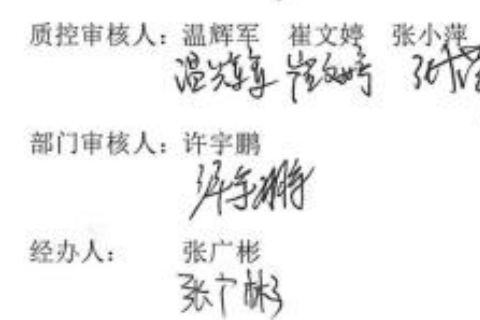 质控审核人：温辉军 崔文婷 张小萍
温辉军 崔文婷 张小萍
部门审核人：许宇鹏
许宇鹏
经办人： 张广彬
张广彬